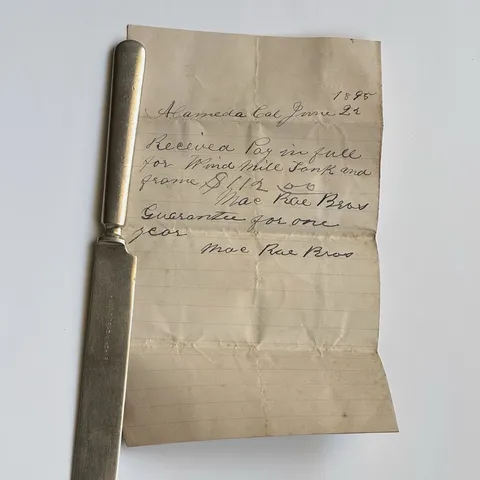 1895
Alameda Cal June 22
Received Pay in full
for Wind Mill Tank and
frame $112 00
Mac Rae Bros
Guarantee for one
year
Mac Rae Bros